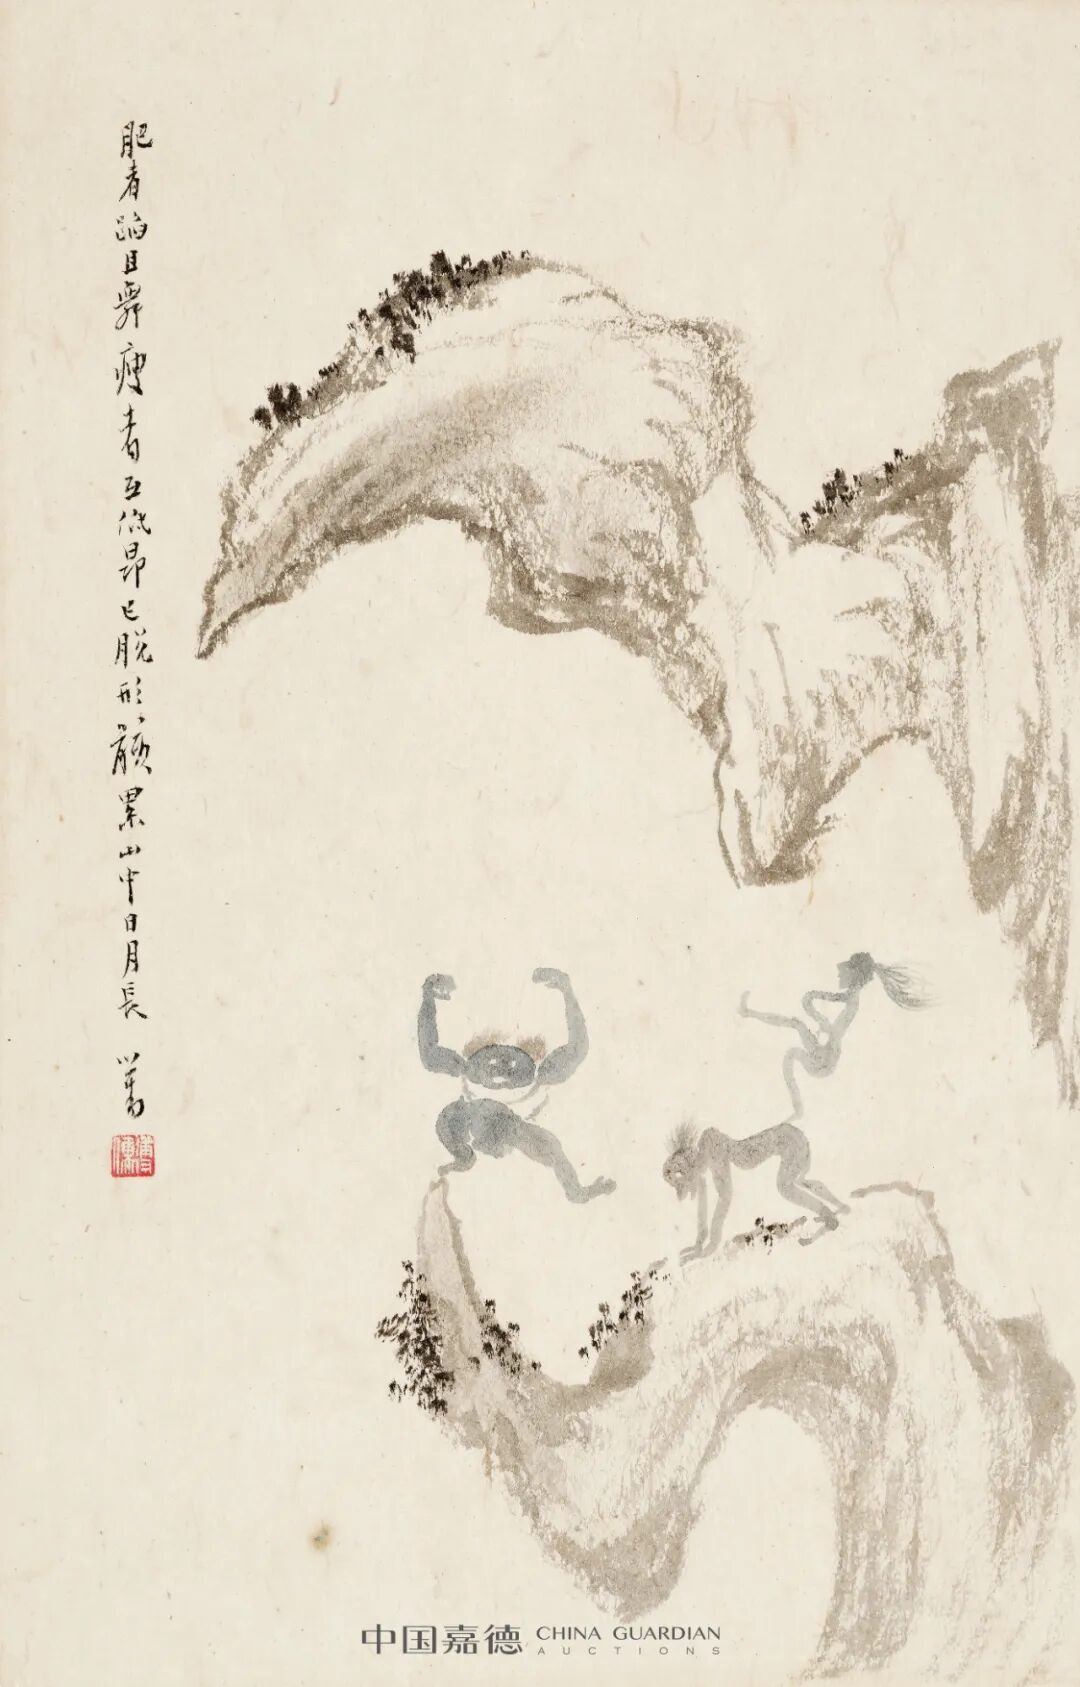 肥者蹈且舞瘦者互低昂已脱形骸累山中日月長 心畬
溥儒
中国嘉德 CHINA GUARDIAN
AUCTIONS